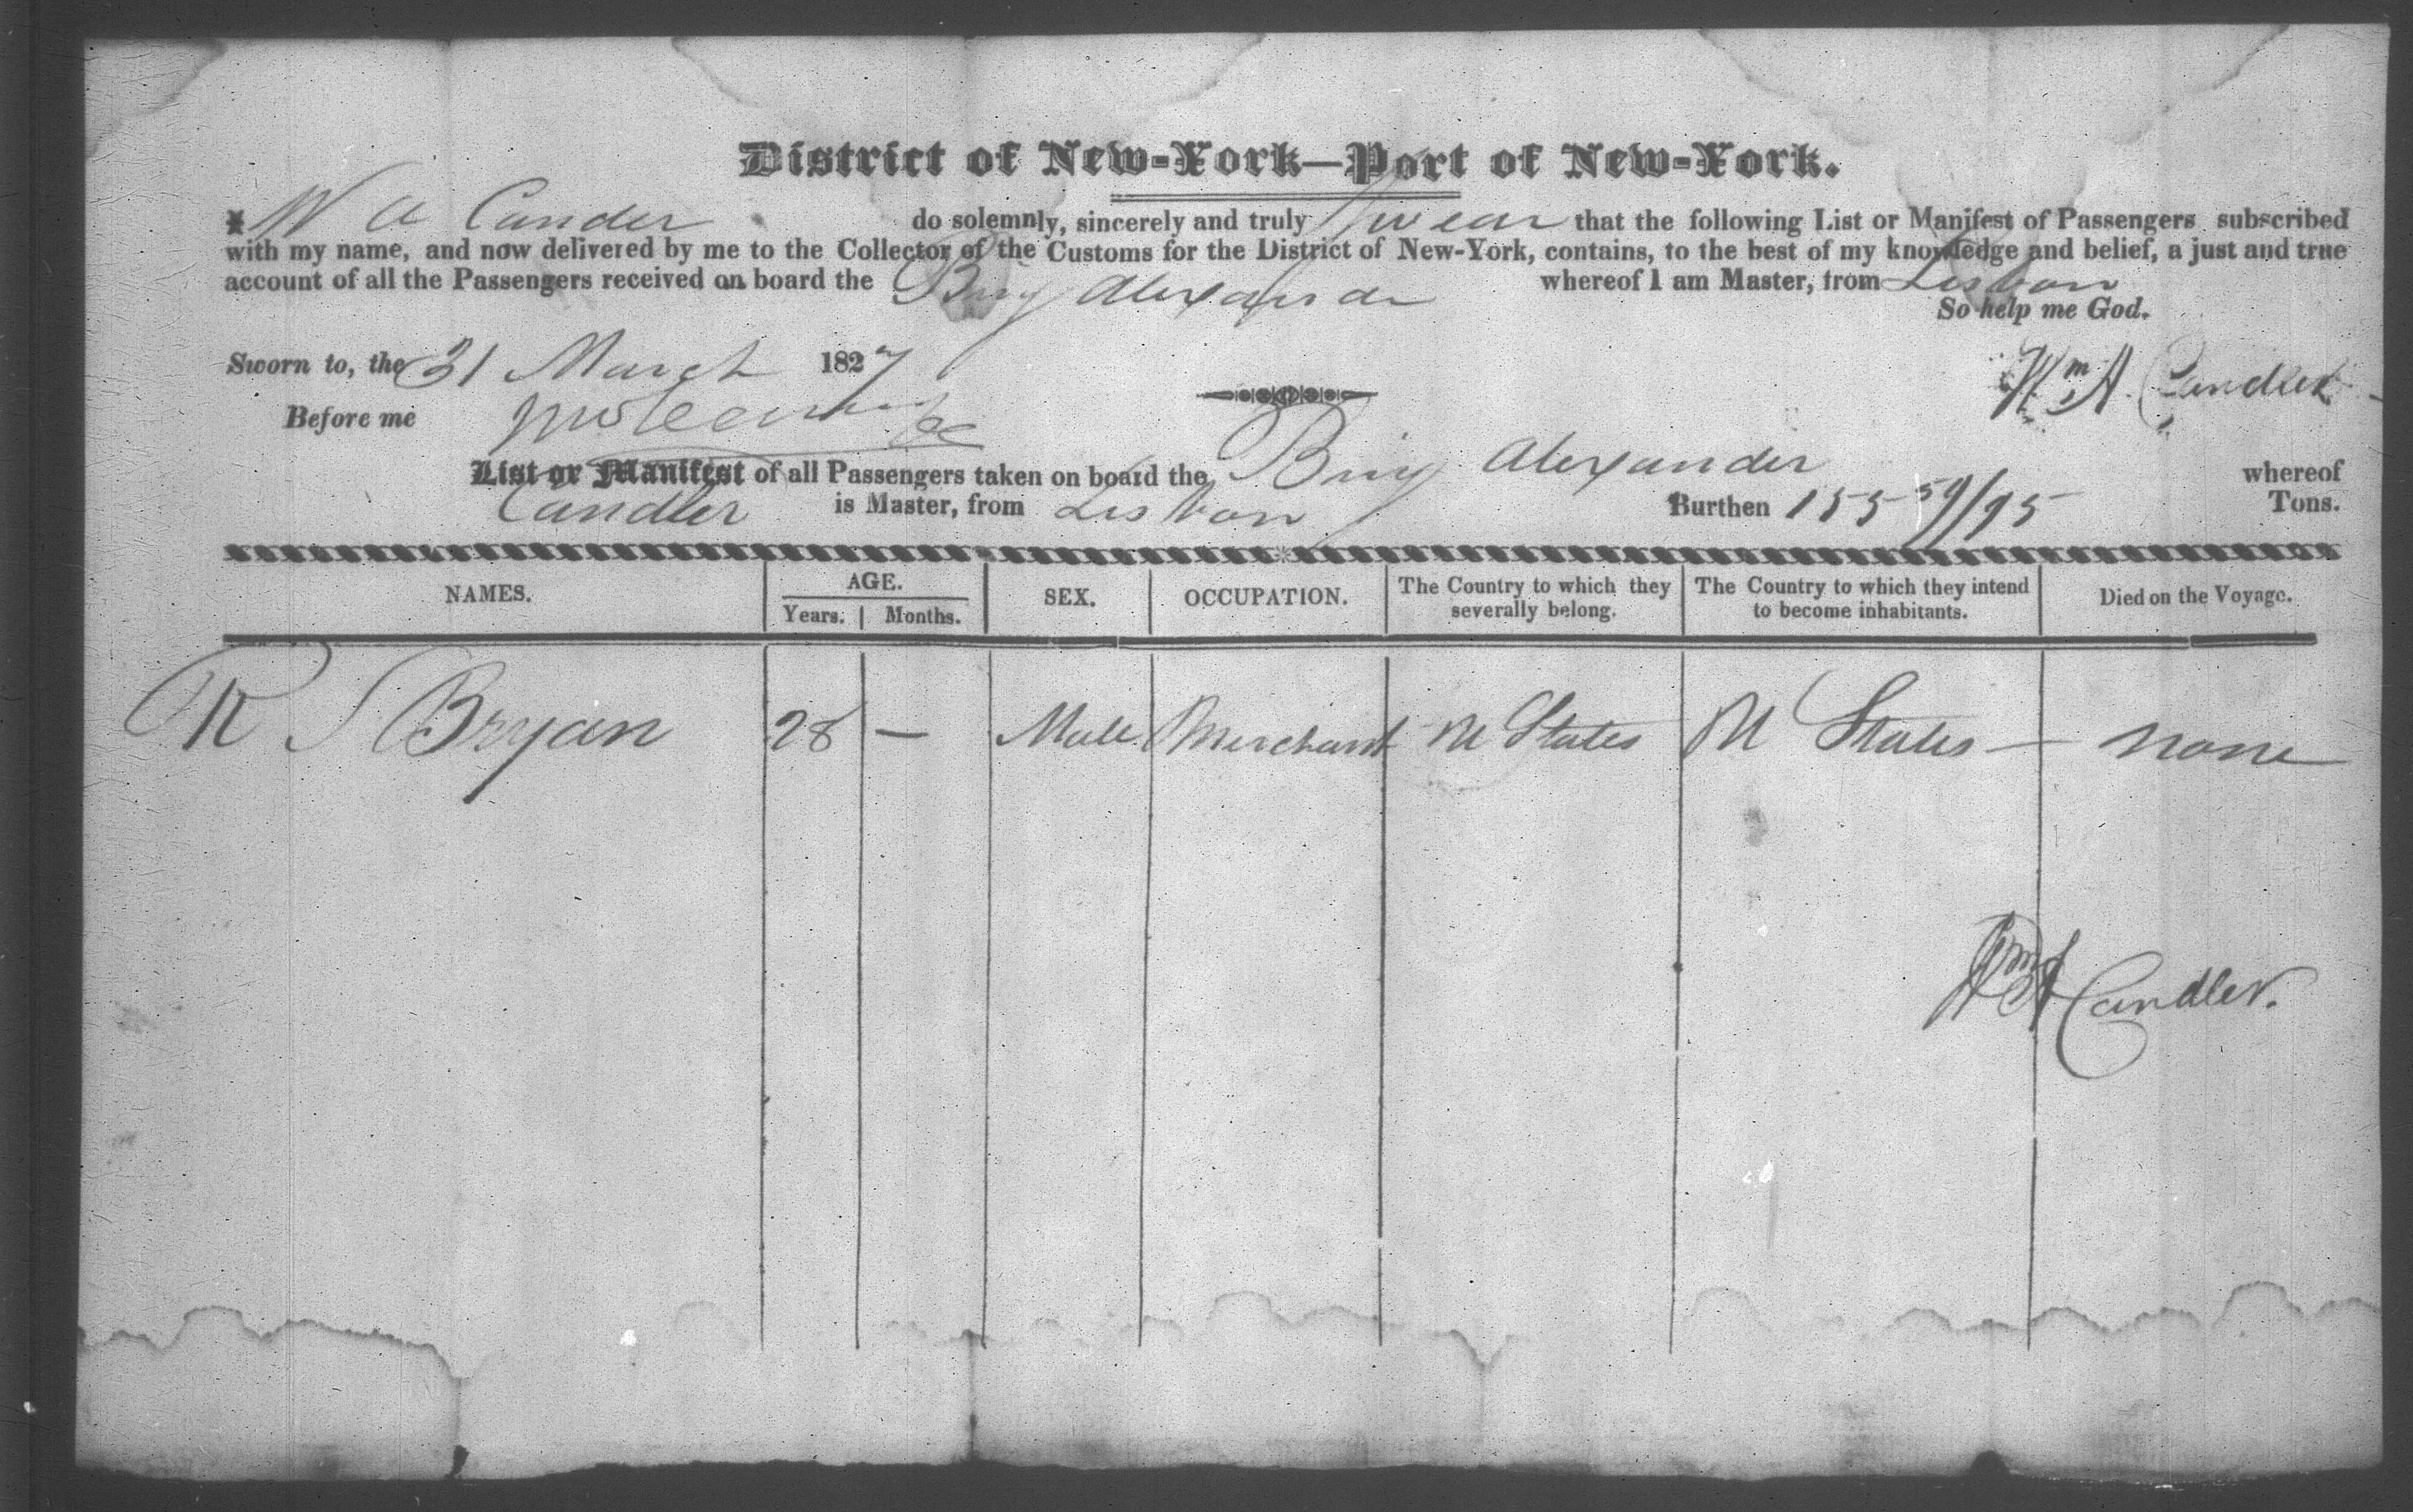 District of New-York—Port of New-York.
I W A Cander do solemnly, sincerely and truly Swear that the following List or Manifest of Passengers subscribed
with my name, and now delivered by me to the Collector of the Customs for the District of New-York, contains, to the best of my knowledge and belief, a just and true
account of all the Passengers received on board the Brig Alexander whereof I am Master, from Lisbon
So help me God.
Sworn to, the 31 March 1827
Wm A Candler
Before me
List or Manifest of all Passengers taken on board the Brig Alexander whereof
Candler is Master, from Lisbon Burthen 155 59/95 Tons.
NAMES. AGE. SEX. OCCUPATION. The Country to which they severally belong. The Country to which they intend to become inhabitants. Died on the Voyage.
Years. Months.
R S Bryan 28 — Male Merchant U States U States — none
Wm A Candler.